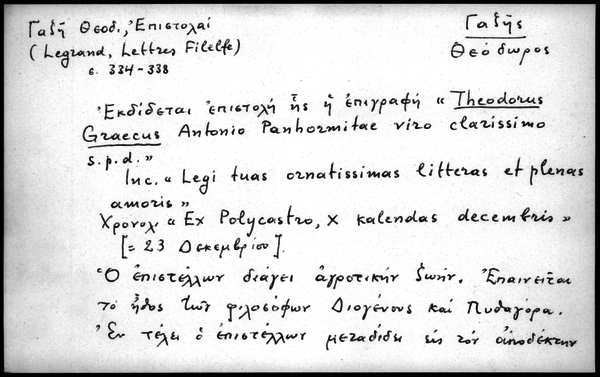 Γαζῆ Θεοδ., Ἐπιστολαί
Γαζῆς
(Legrand, Lettres Filelfe)
Θεόδωρος
σ. 334-338
Ἐκδίδεται ἐπιστολή ἧς ἡ ἐπιγραφή « Theodorus
Graecus Antonio Panhormitae viro clarissimo
s.p.d. »
Inc. « Legi tuas ornatissimas litteras et plenas
amoris »
Χρονολ. « Ex Polycastro, X kalendas decembris »
[= 23 Δεκεμβρίου].
Ὁ ἐπιστέλλων διάγει ἀγροτικήν ζωήν. Ἐπαινεῖται
τό ἦθος τῶν φιλοσόφων Διογένους καί Πυθαγόρα.
Ἐν τέλει ὁ ἐπιστέλλων μεταδίδει εἰς τόν ἀποδέκτην